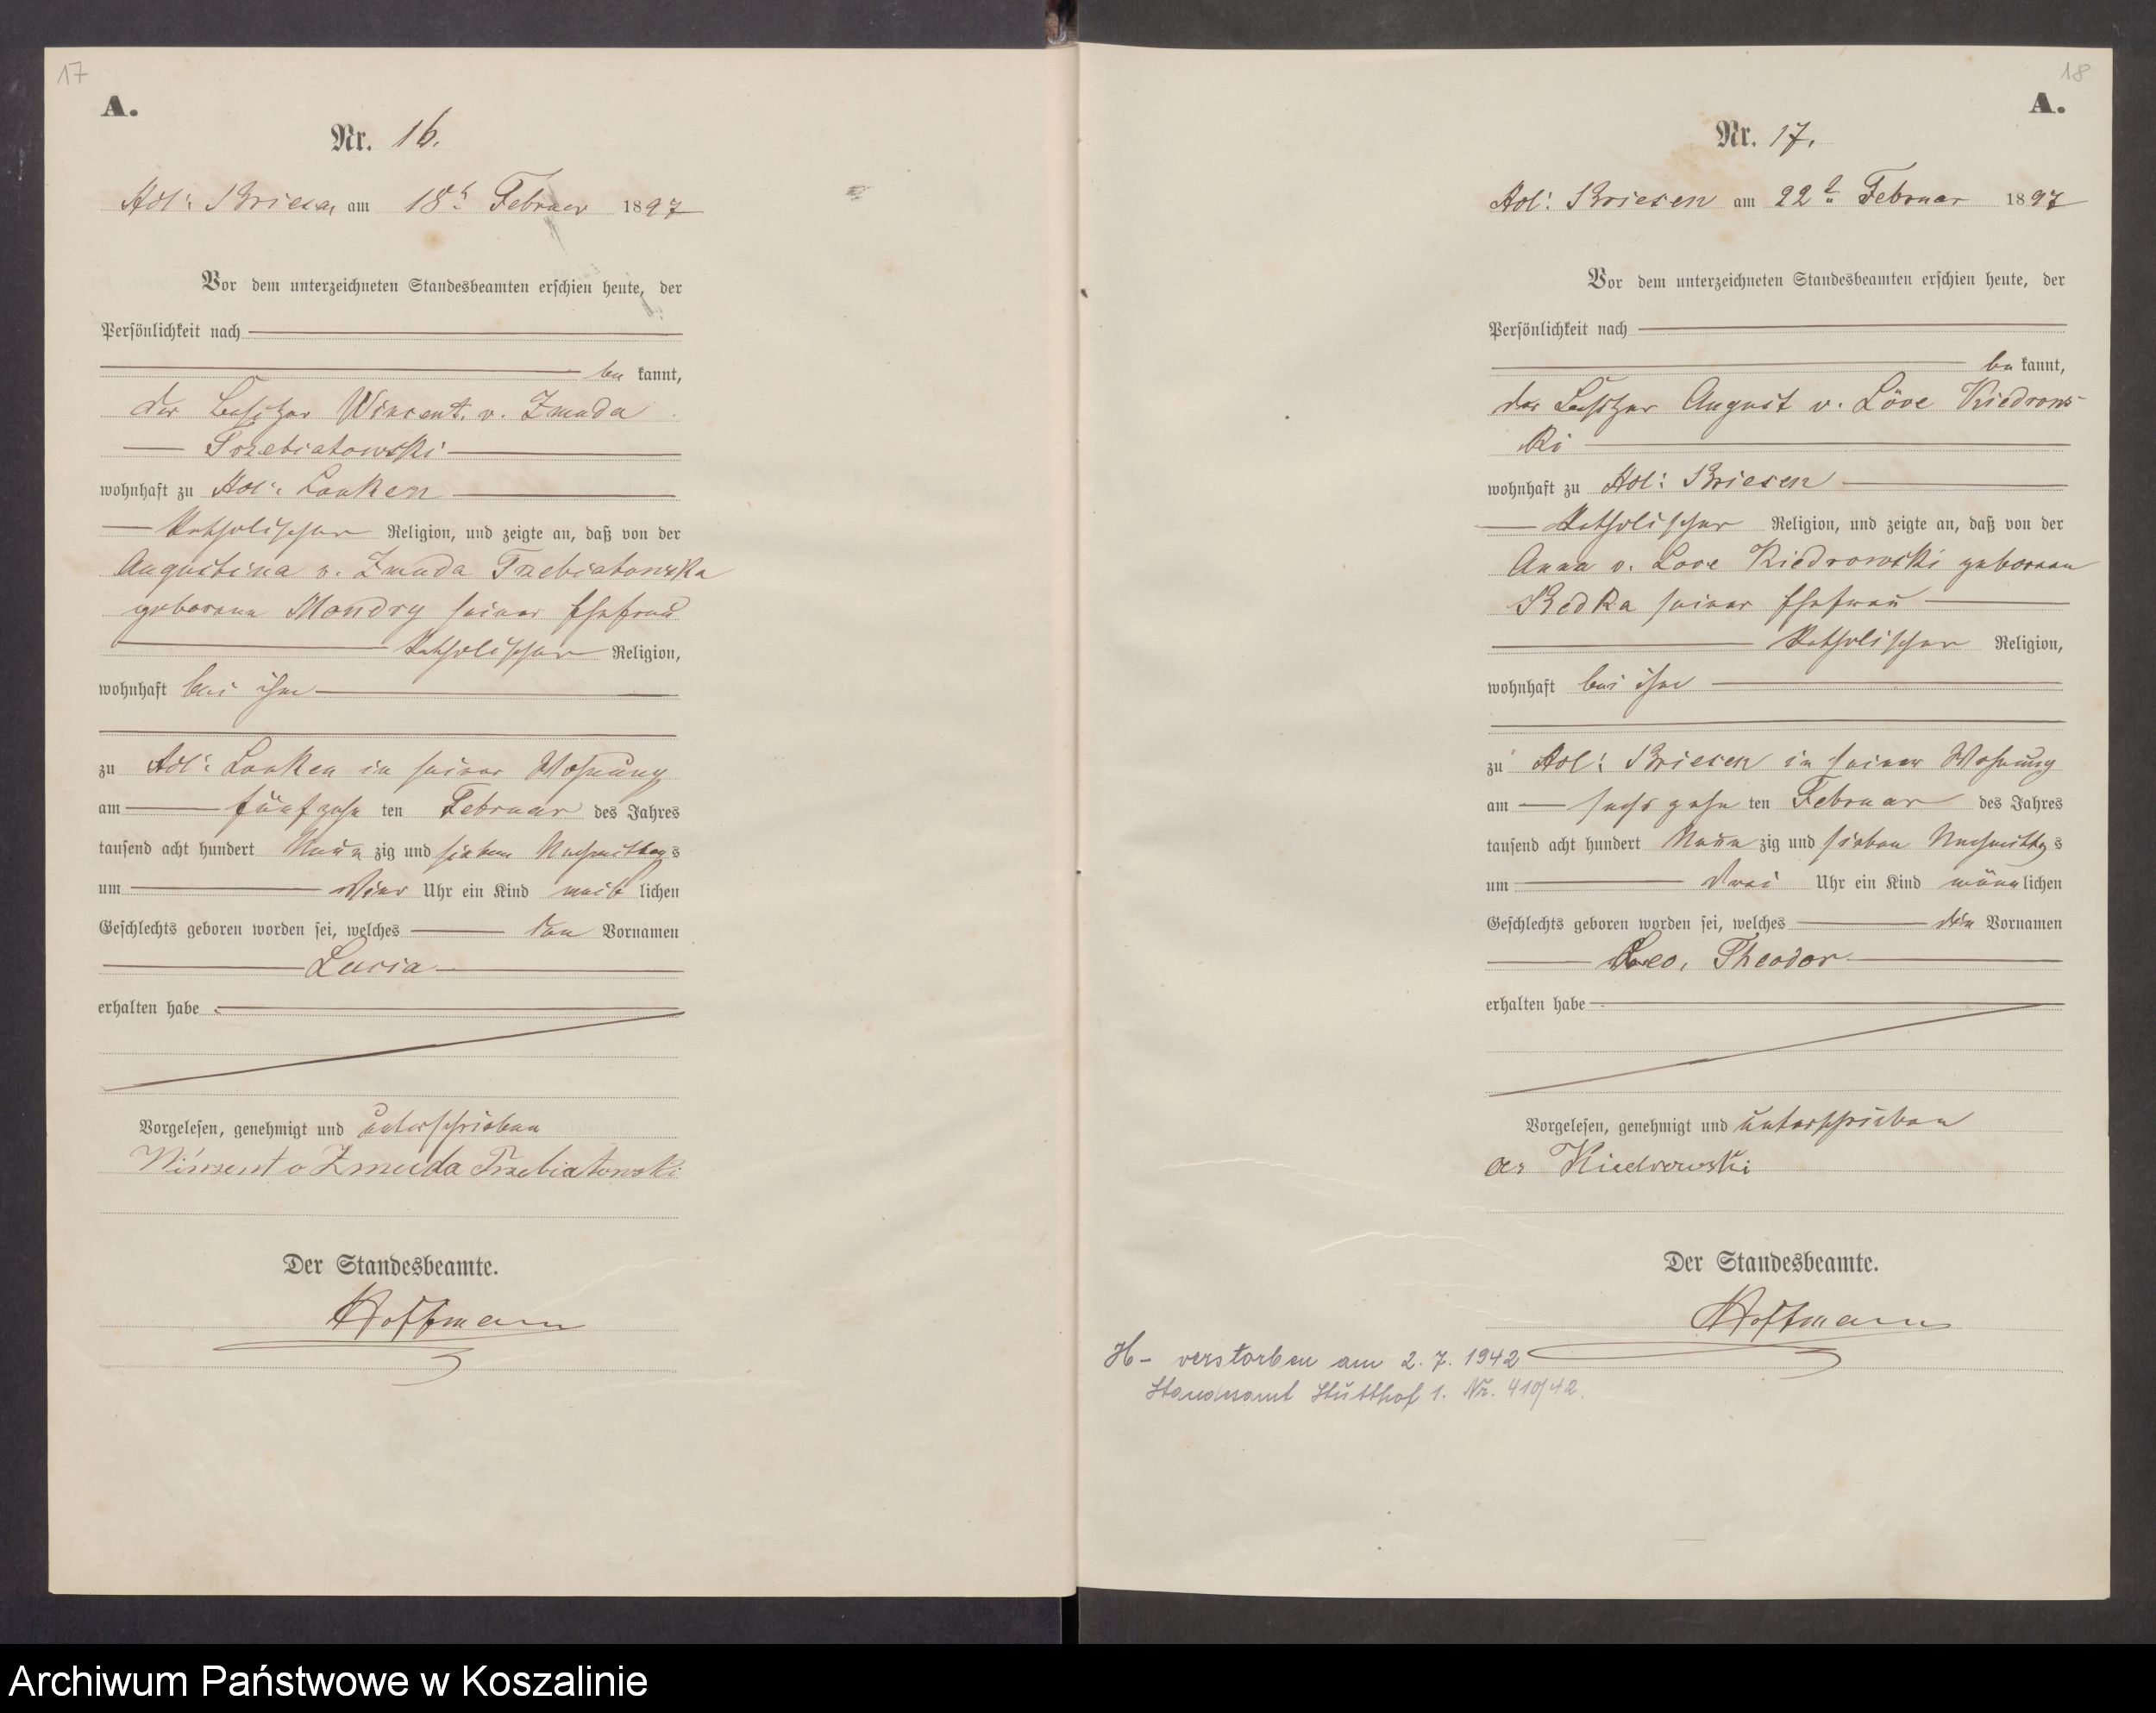 17
A.
Nr. 16.
Adl: Briesen am 18t Februar 1897
Vor dem unterzeichneten Standesbeamten erschien heute, der
Persönlichkeit nach
be kannt,
der Besitzer Wincent. v. Zmuda
Trzebiatowski
wohnhaft zu Adl: Lanken
katholischer Religion, und zeigte an, daß von der
Augustina v. Zmuda Trzebiatowska
geborene Mondry seiner Ehefrau
katholischer Religion,
wohnhaft bei ihm
zu Adl: Lanken in seiner Wohnung
am fünfzehn ten Februar des Jahres
tausend acht hundert Neun zig und sieben Nachmittags
um Vier Uhr ein Kind weib lichen
Geschlechts geboren worden sei, welches den Vornamen
Lucia
erhalten habe
Vorgelesen, genehmigt und unterschrieben
Winsent v Zmuda Trzebiatowski
Der Standesbeamte.
Hoffmann
18
A.
Nr. 17.
Adl: Briesen am 22t Februar 1897
Vor dem unterzeichneten Standesbeamten erschien heute, der
Persönlichkeit nach
be kannt,
der Besitzer August v. Löve Kiedrows-
ki
wohnhaft zu Adl: Briesen
katholischer Religion, und zeigte an, daß von der
Anna v. Love Kiedrowski geborenen
Redka seiner Ehefrau
katholischer Religion,
wohnhaft bei ihm
zu Adl: Briesen in seiner Wohnung
am sechszehn ten Februar des Jahres
tausend acht hundert Neun zig und sieben Nachmittgs
um Drei Uhr ein Kind männlichen
Geschlechts geboren worden sei, welches den Vornamen
Leo, Theodor
erhalten habe
Vorgelesen, genehmigt und unterschrieben
Kiedrowski
Der Standesbeamte.
Hoffmann
H- verstorben am 2. 7. 1942
Standesamt Stutthof 1. Nr. 410/42.
Archiwum Państwowe w Koszalinie